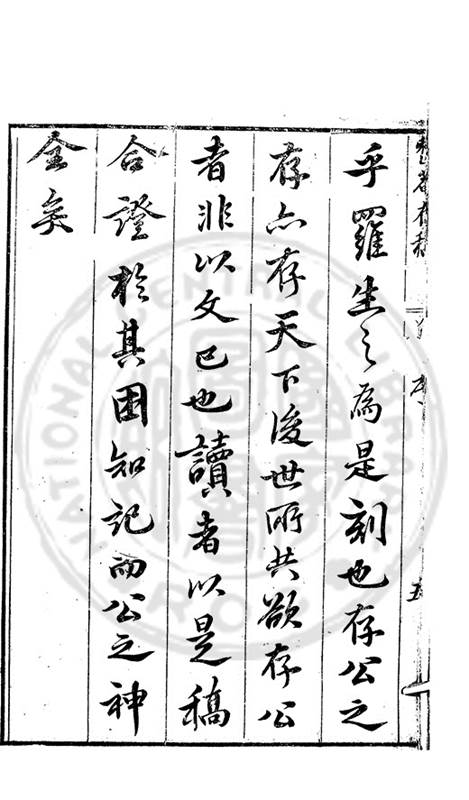 整菴存稿 序 五
乎羅生之為是刻也存公之
存亦存天下後世所共欲存公
者非以文已也讀者以是稿
合證於其困知記而公之神
全矣